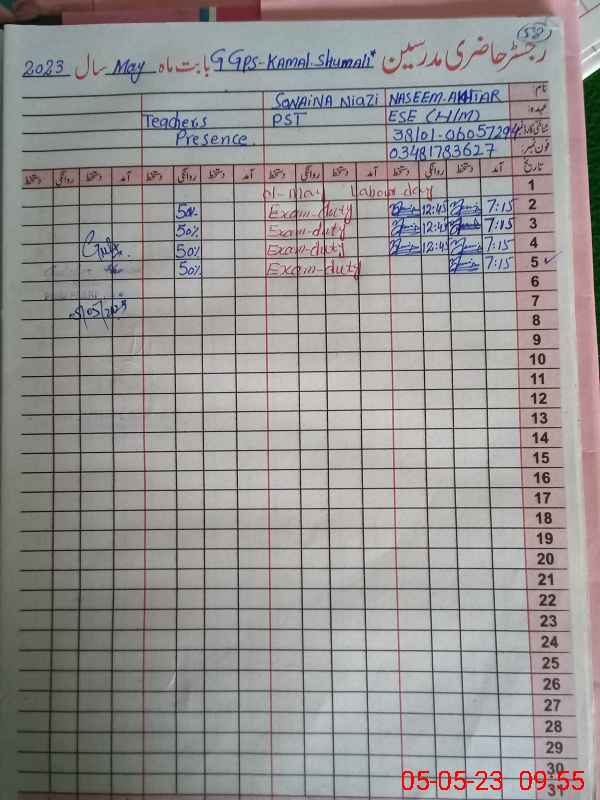 538
رجسٹر حاضری مدرسین GGPS-Kamal.Shumali بابت ماه May سال 2023
نام: NASEEM-AKHTAR SONAINA Niazi
عہدہ: ESE (H/M) PST Teachers
شناختی کارڈ نمبر Presence.
فون نمبر: 03481783627
تاریخ آمد دستخط روانگی دستخط آمد دستخط روانگی دستخط آمد دستخط روانگی دستخط آمد دستخط روانگی دستخط
1 01-May Labour day
2 7:15 12:45 Exam-duty 50%
3 7:15 12:45 Exam-duty 50%
4 7:15 12:45 Exam-duty 50%
5 7:15 Exam-duty 50%
6
7
8
9
10
11
12
13
14
15
16
17
18
19
20
21
22
23
24
25
26
27
28
29
30
31
05-05-23 09:55